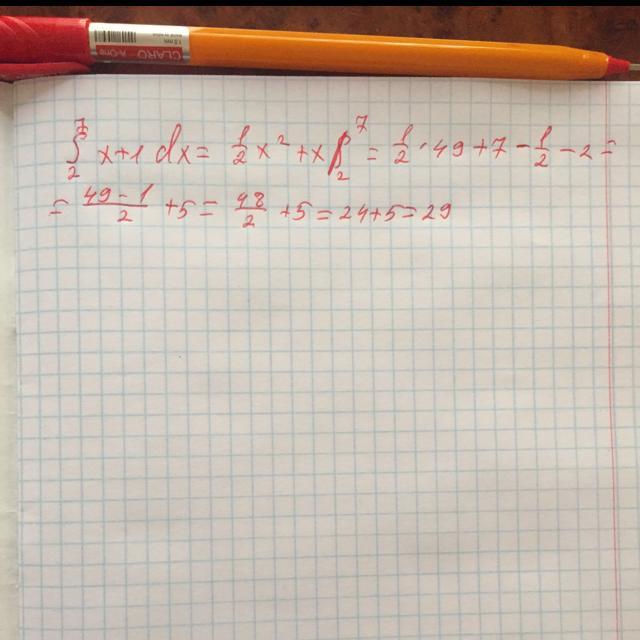 CLARO A-One 1.0 mm
∫₂⁷ x+1 dx = 1/2 x² + x |₂⁷ = 1/2 · 49 + 7 - 1/2 - 2 =
= (49 - 1)/2 + 5 = 48/2 + 5 = 24 + 5 = 29